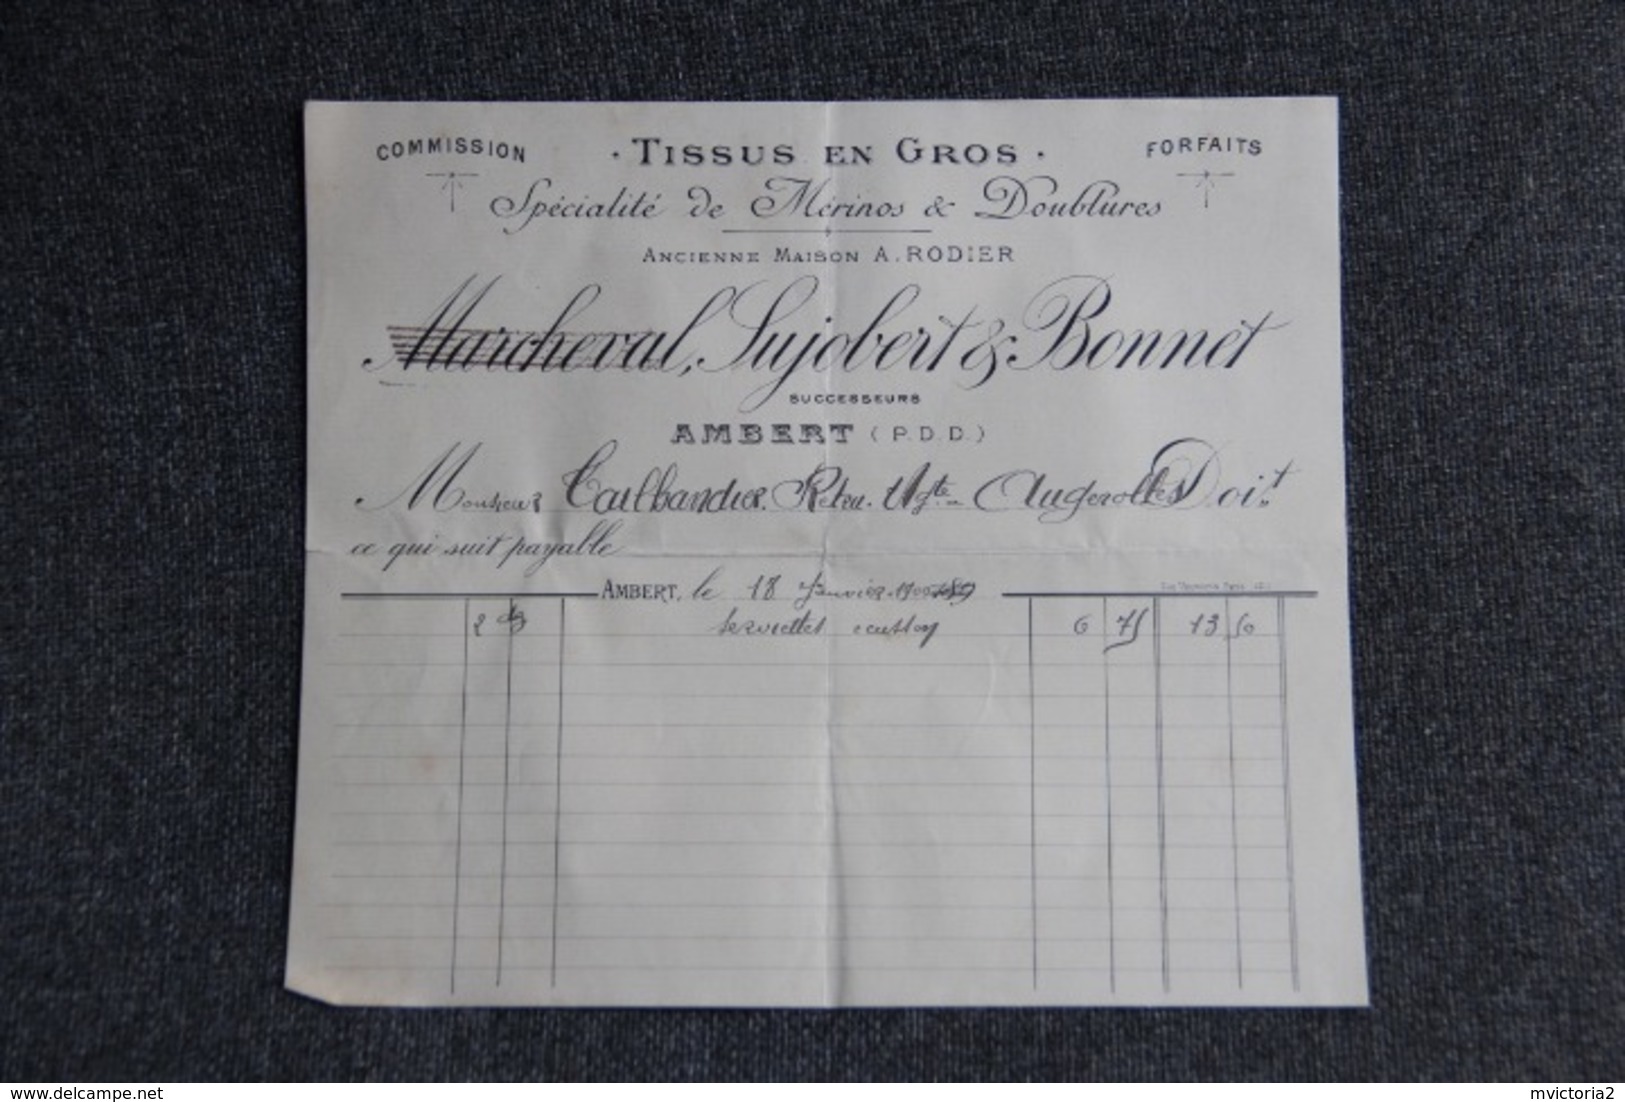 COMMISSION · TISSUS EN GROS · FORFAITS
Spécialité de Mérinos & Doublures
ANCIENNE MAISON A. RODIER
Marcheval, Sujobert & Bonnet
SUCCESSEURS
AMBERT (P.D.D.)
Monsieur Taillandier Augerolles Doit
ce qui suit payable
AMBERT, le 18 Janvier 1900
2 serviettes 6 75 13 50
www.delcampe.net mvictoria2